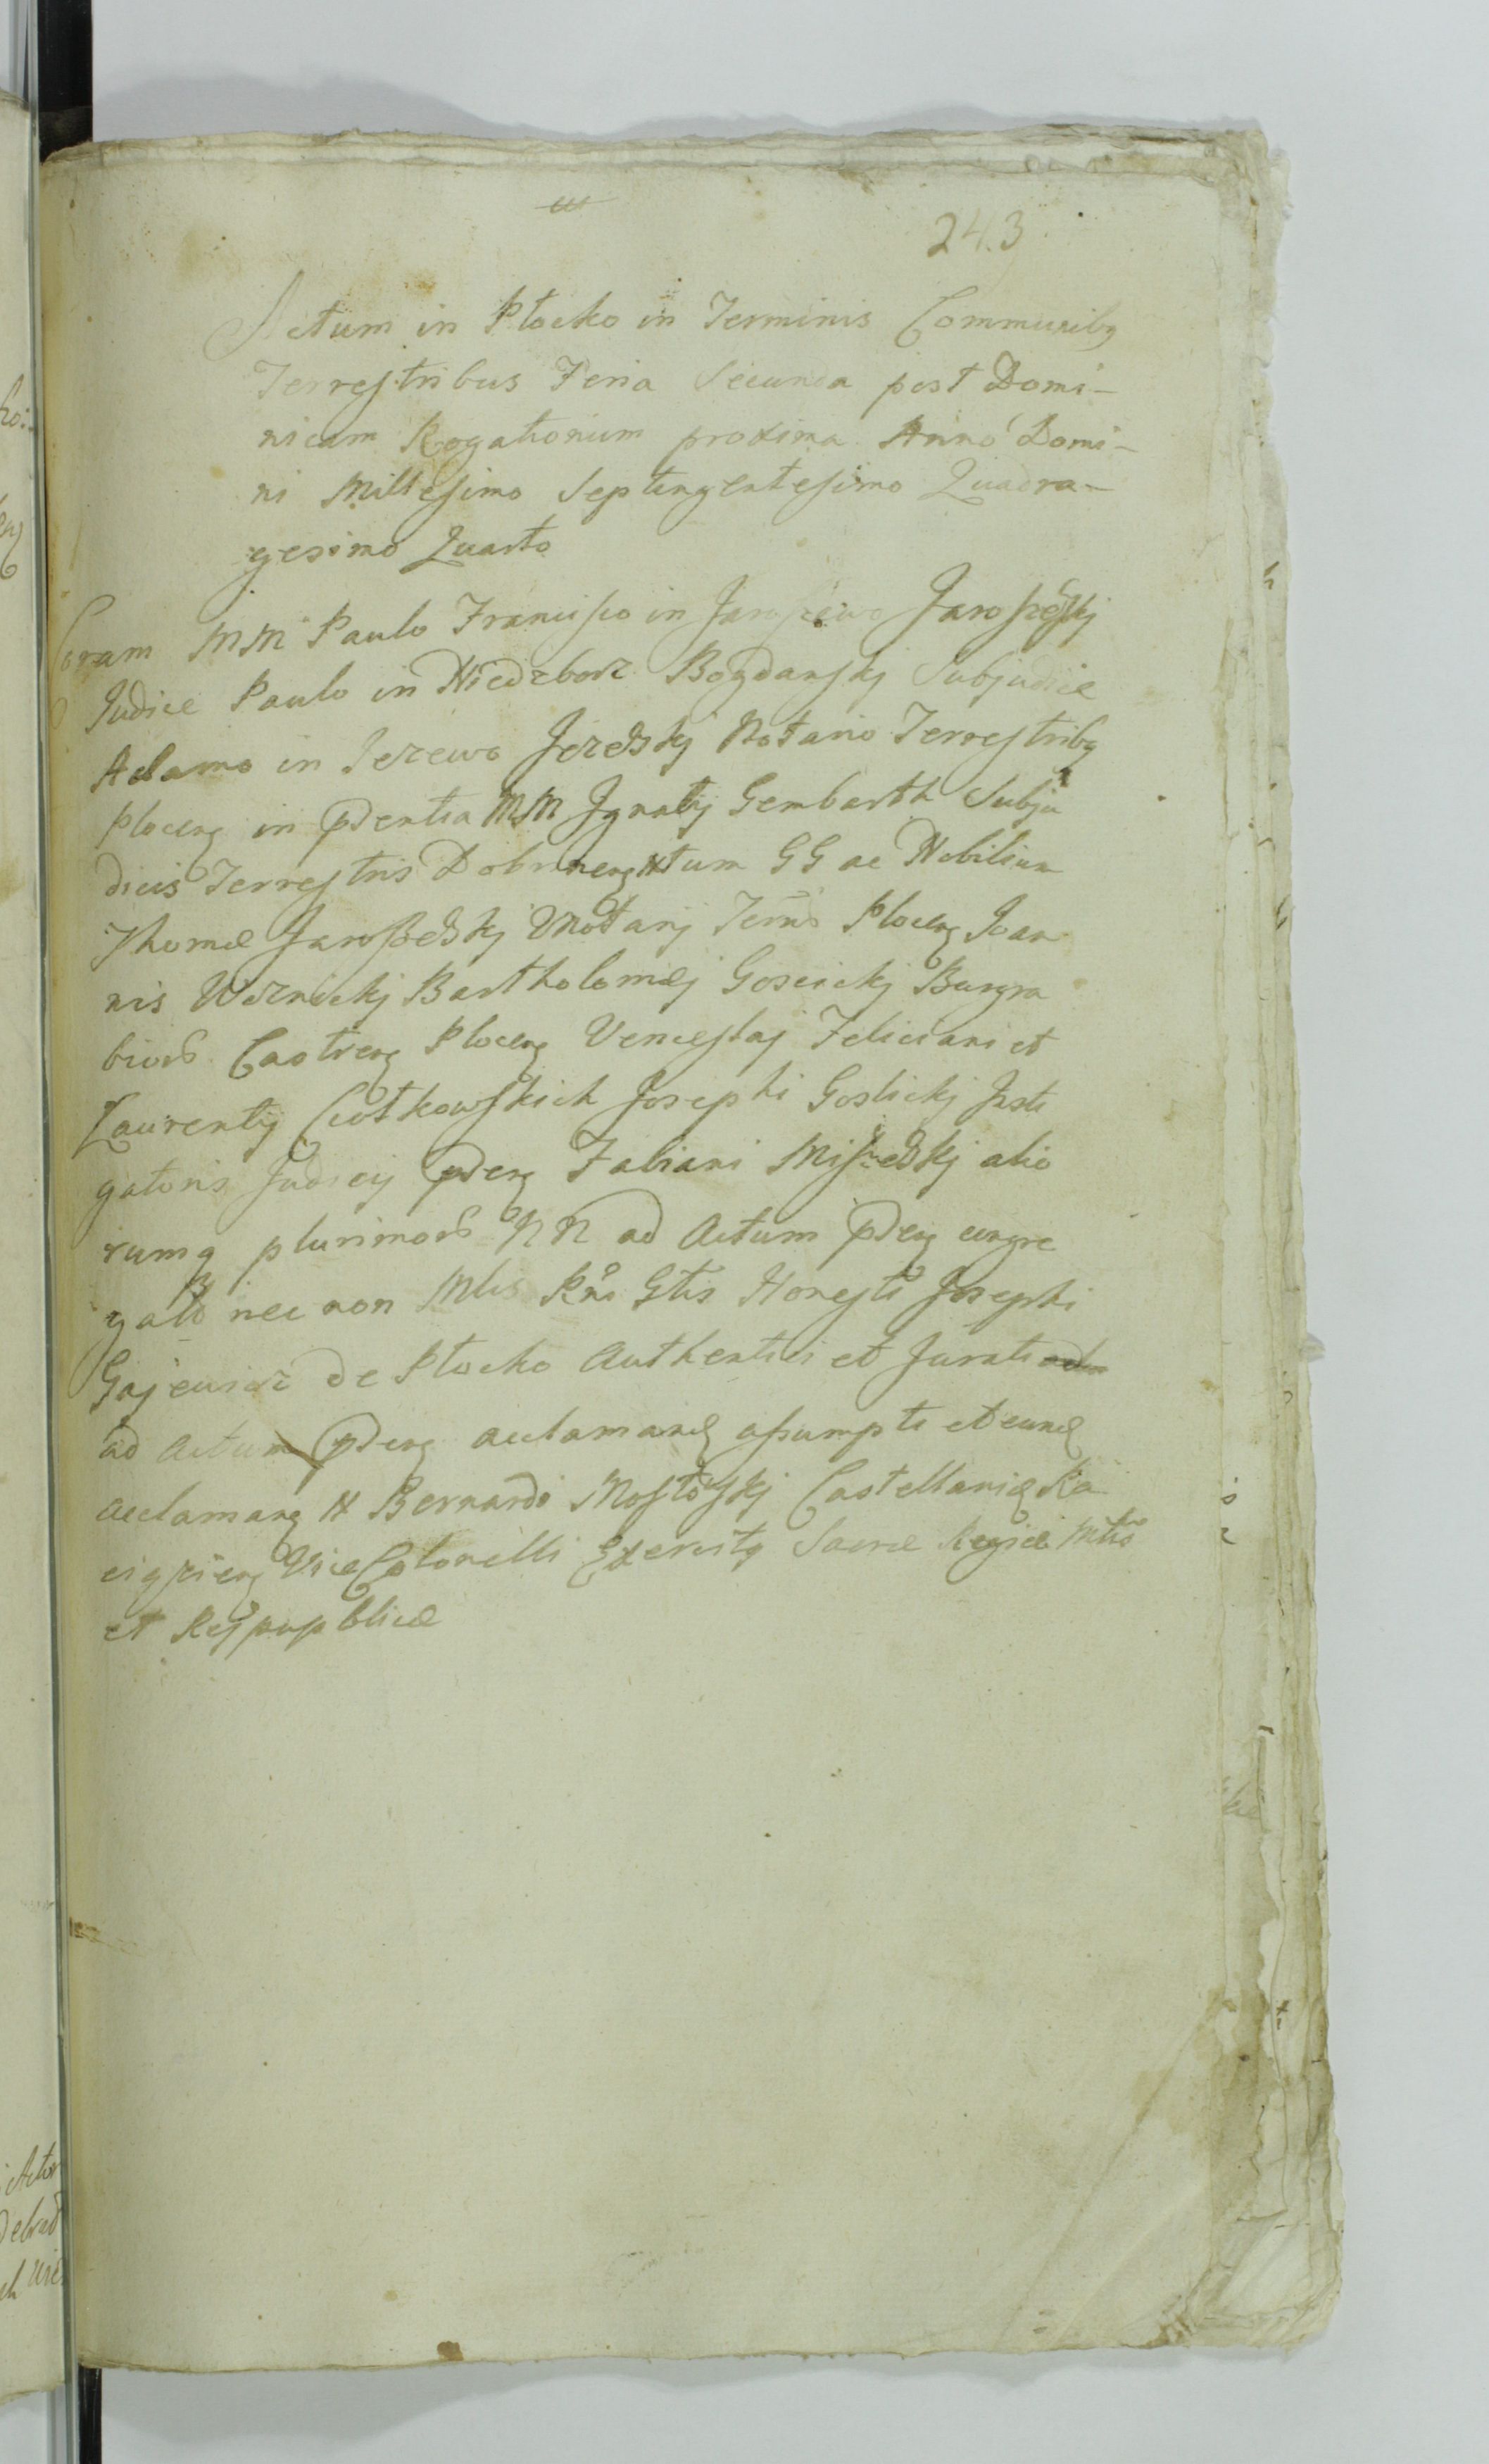 243
Actum in Płocko in Terminis Communibq
Terrestribus Feria Secunda post Domi-
nicam Rogationum proxima Anno Domi-
ni Millesimo Septingentesimo Quadra-
gesimo Quarto
Coram MM Paulo Francisco in Jaroszewo Jaroszewskj
Judice Paulo in Niedzborz Bogdanskj Subjudice
Adamo in Jezewo Jezewskj Notario Terrestribq
Plocens in pdentia MM Ignatij Gembarth Subju
dicis Terrestris Dobrinens Ntum GG ac Nobilium
Thomæ Jaroszewskj VNotarij Plocens Joan
nis Bartholomæj Goscickj Burgra
bior Castren Plocens Venceslaj Feliciani et
Laurentij Ciotkowskich Josephi Goslickj Insti
gatoris Judicij pdens Fabiani Miszewskj alio
rumq plurimor NN ad Actum pdens congre
gator nec non Mlis Rni Gtis Honesti Josephi
Gajewicz de Płocko Authentici et Jurati
ad Actum pdens acclamand assumpti et eund
acclamans N Bernardi Mostowskj Castellanidæ Ra
cigziens Vice Colonelli Exercitq Sacræ Regiæ Mttis
et Reipupblicæ